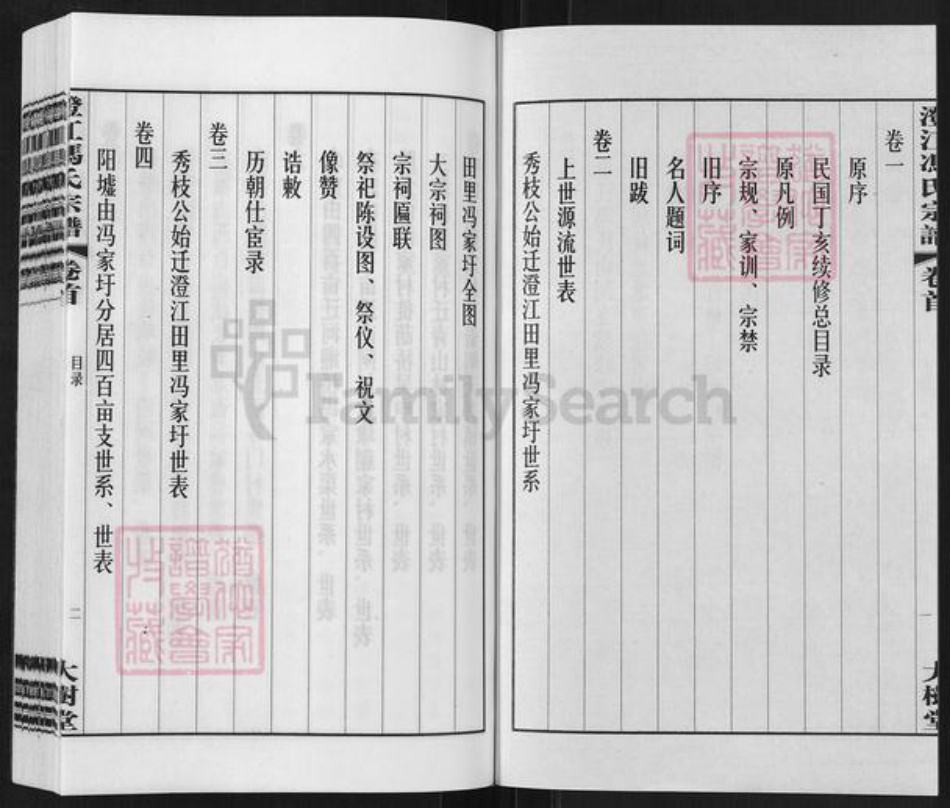 澄江冯氏宗谱 卷首
一
大树堂
卷一
原序
民国丁亥续修总目录
原凡例
宗规、家训、宗禁
旧序
名人题词
旧跋
卷二
上世源流世表
秀枝公始迁澄江田里冯家圩世系
田里冯家圩全图
大宗祠图
宗祠匾联
祭祀陈设图、祭仪、祝文
像赞
诰敕
历朝仕宦录
卷三
秀枝公始迁澄江田里冯家圩世表
卷四
阳墟由冯家圩分居四百亩支世系、世表
澄江馮氏宗譜 卷首
目录
二
大樹堂
FamilySearch